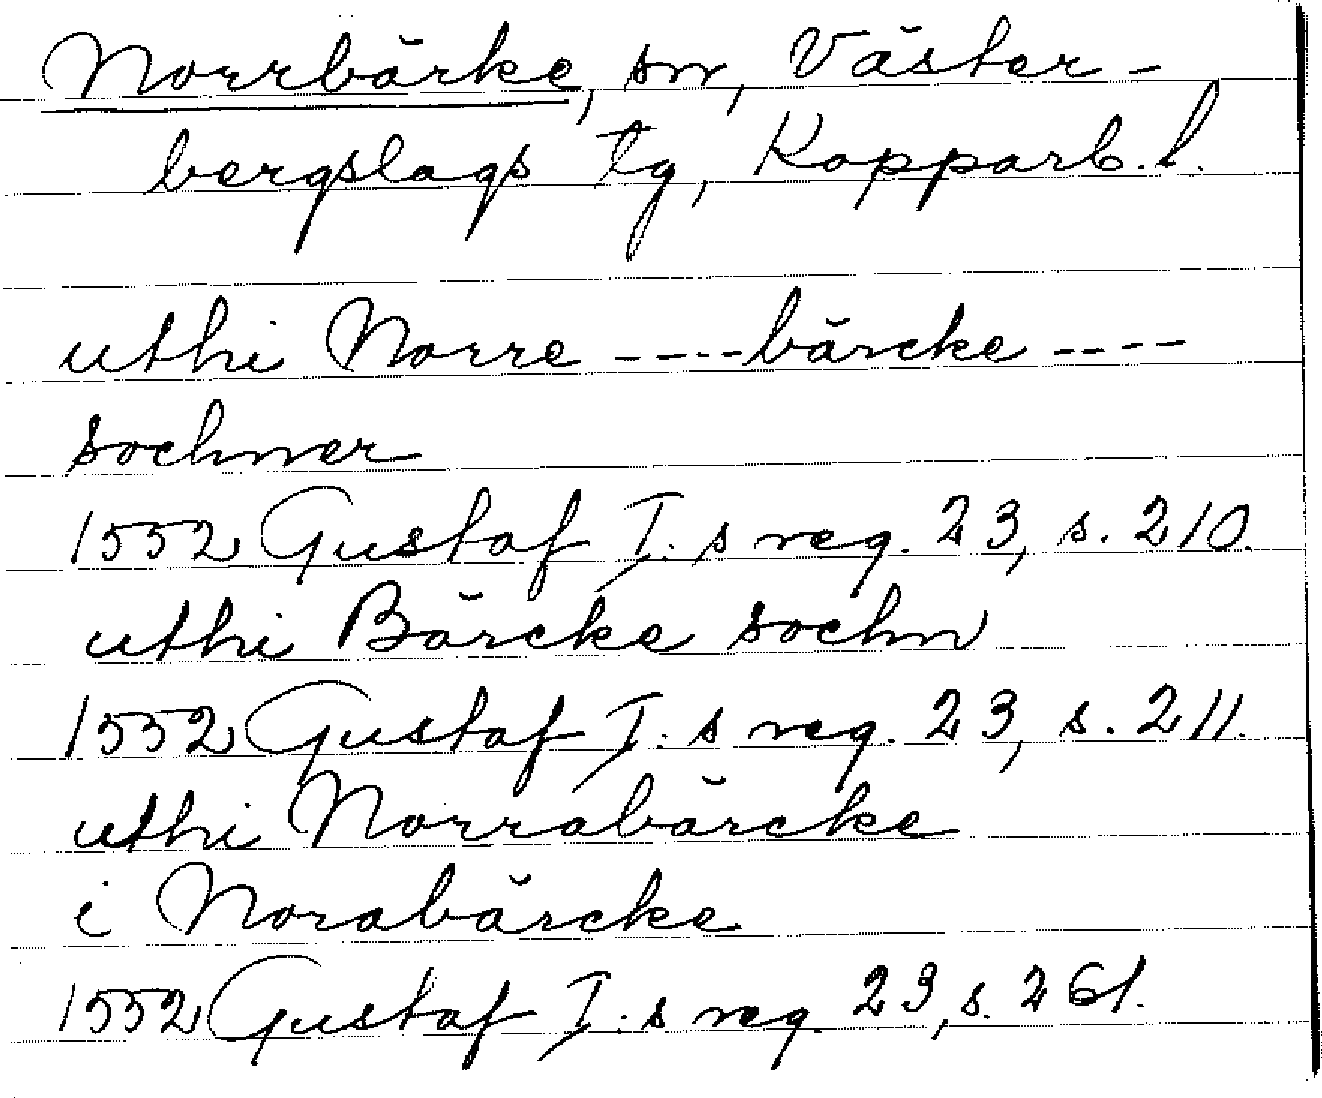 Norrbärke, sn, Väster-
bergslags tg, Kopparb. l.
uthi Norre ----bärcke ----
sochner
1552 Gustaf I:s reg. 23, s. 210.
uthi Bärcke sochn
1552 Gustaf I:s reg. 23, s. 211.
uthi Norrabärcke
i Norabärcke
1552 Gustaf I:s reg. 23, s. 261.